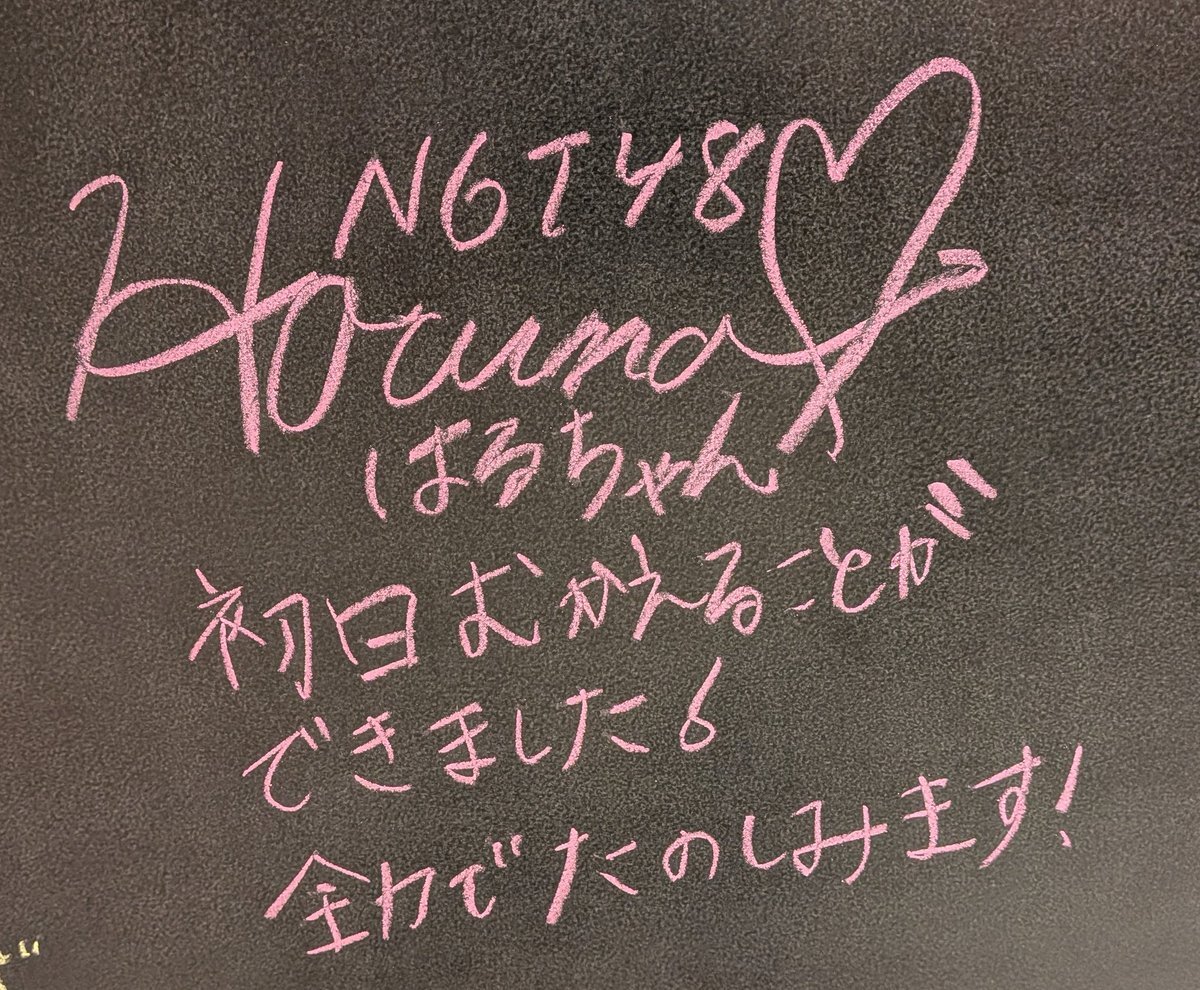 NGT48
Haruna♡
はるちゃん
初日むかえることが
できました6
全力でたのしみます!